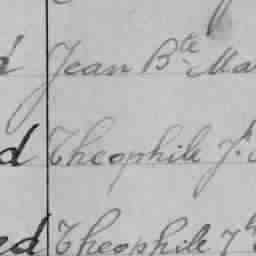 d Jean Bte Ma
d Theophile Jr
ed Theophile Jr